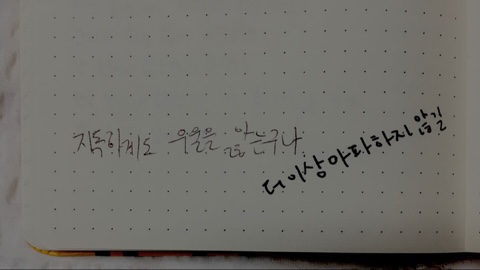 지독하게도 우울을 앓는구나
더 이상 아파하지 않길